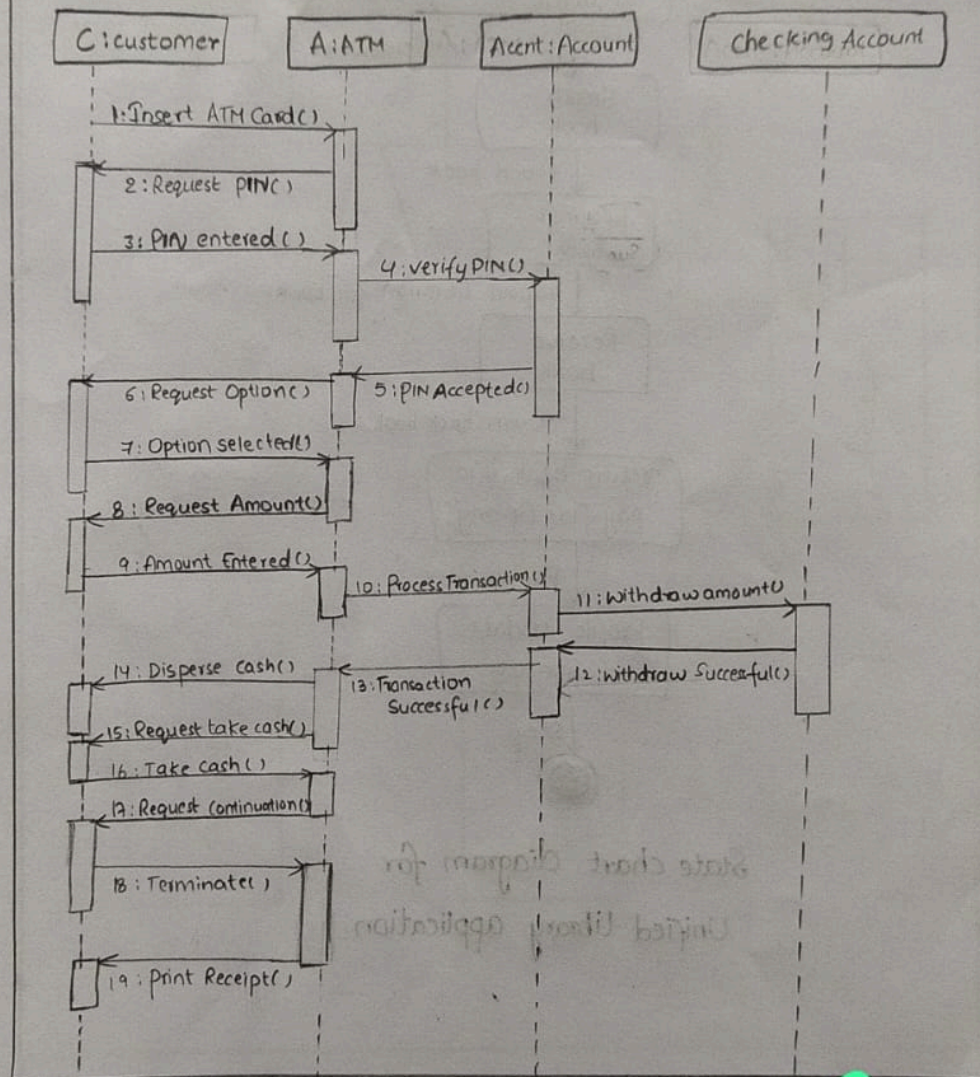 C:customer
A:ATM
Accnt:Account
Checking Account
1:Insert ATM Card()
2:Request PIN()
3:PIN entered()
4:verifyPIN()
5:PIN Accepted()
6:Request Option()
7:Option selected()
8:Request Amount()
9:Amount Entered()
10:Process Transaction()
11:Withdraw amount()
12:withdraw Successful()
13:Transaction
Successful()
14:Disperse cash()
15:Request take cash()
16:Take cash()
17:Request Continuation()
18:Terminate()
19:Print Receipt()
State chart diagram for
Unified library application